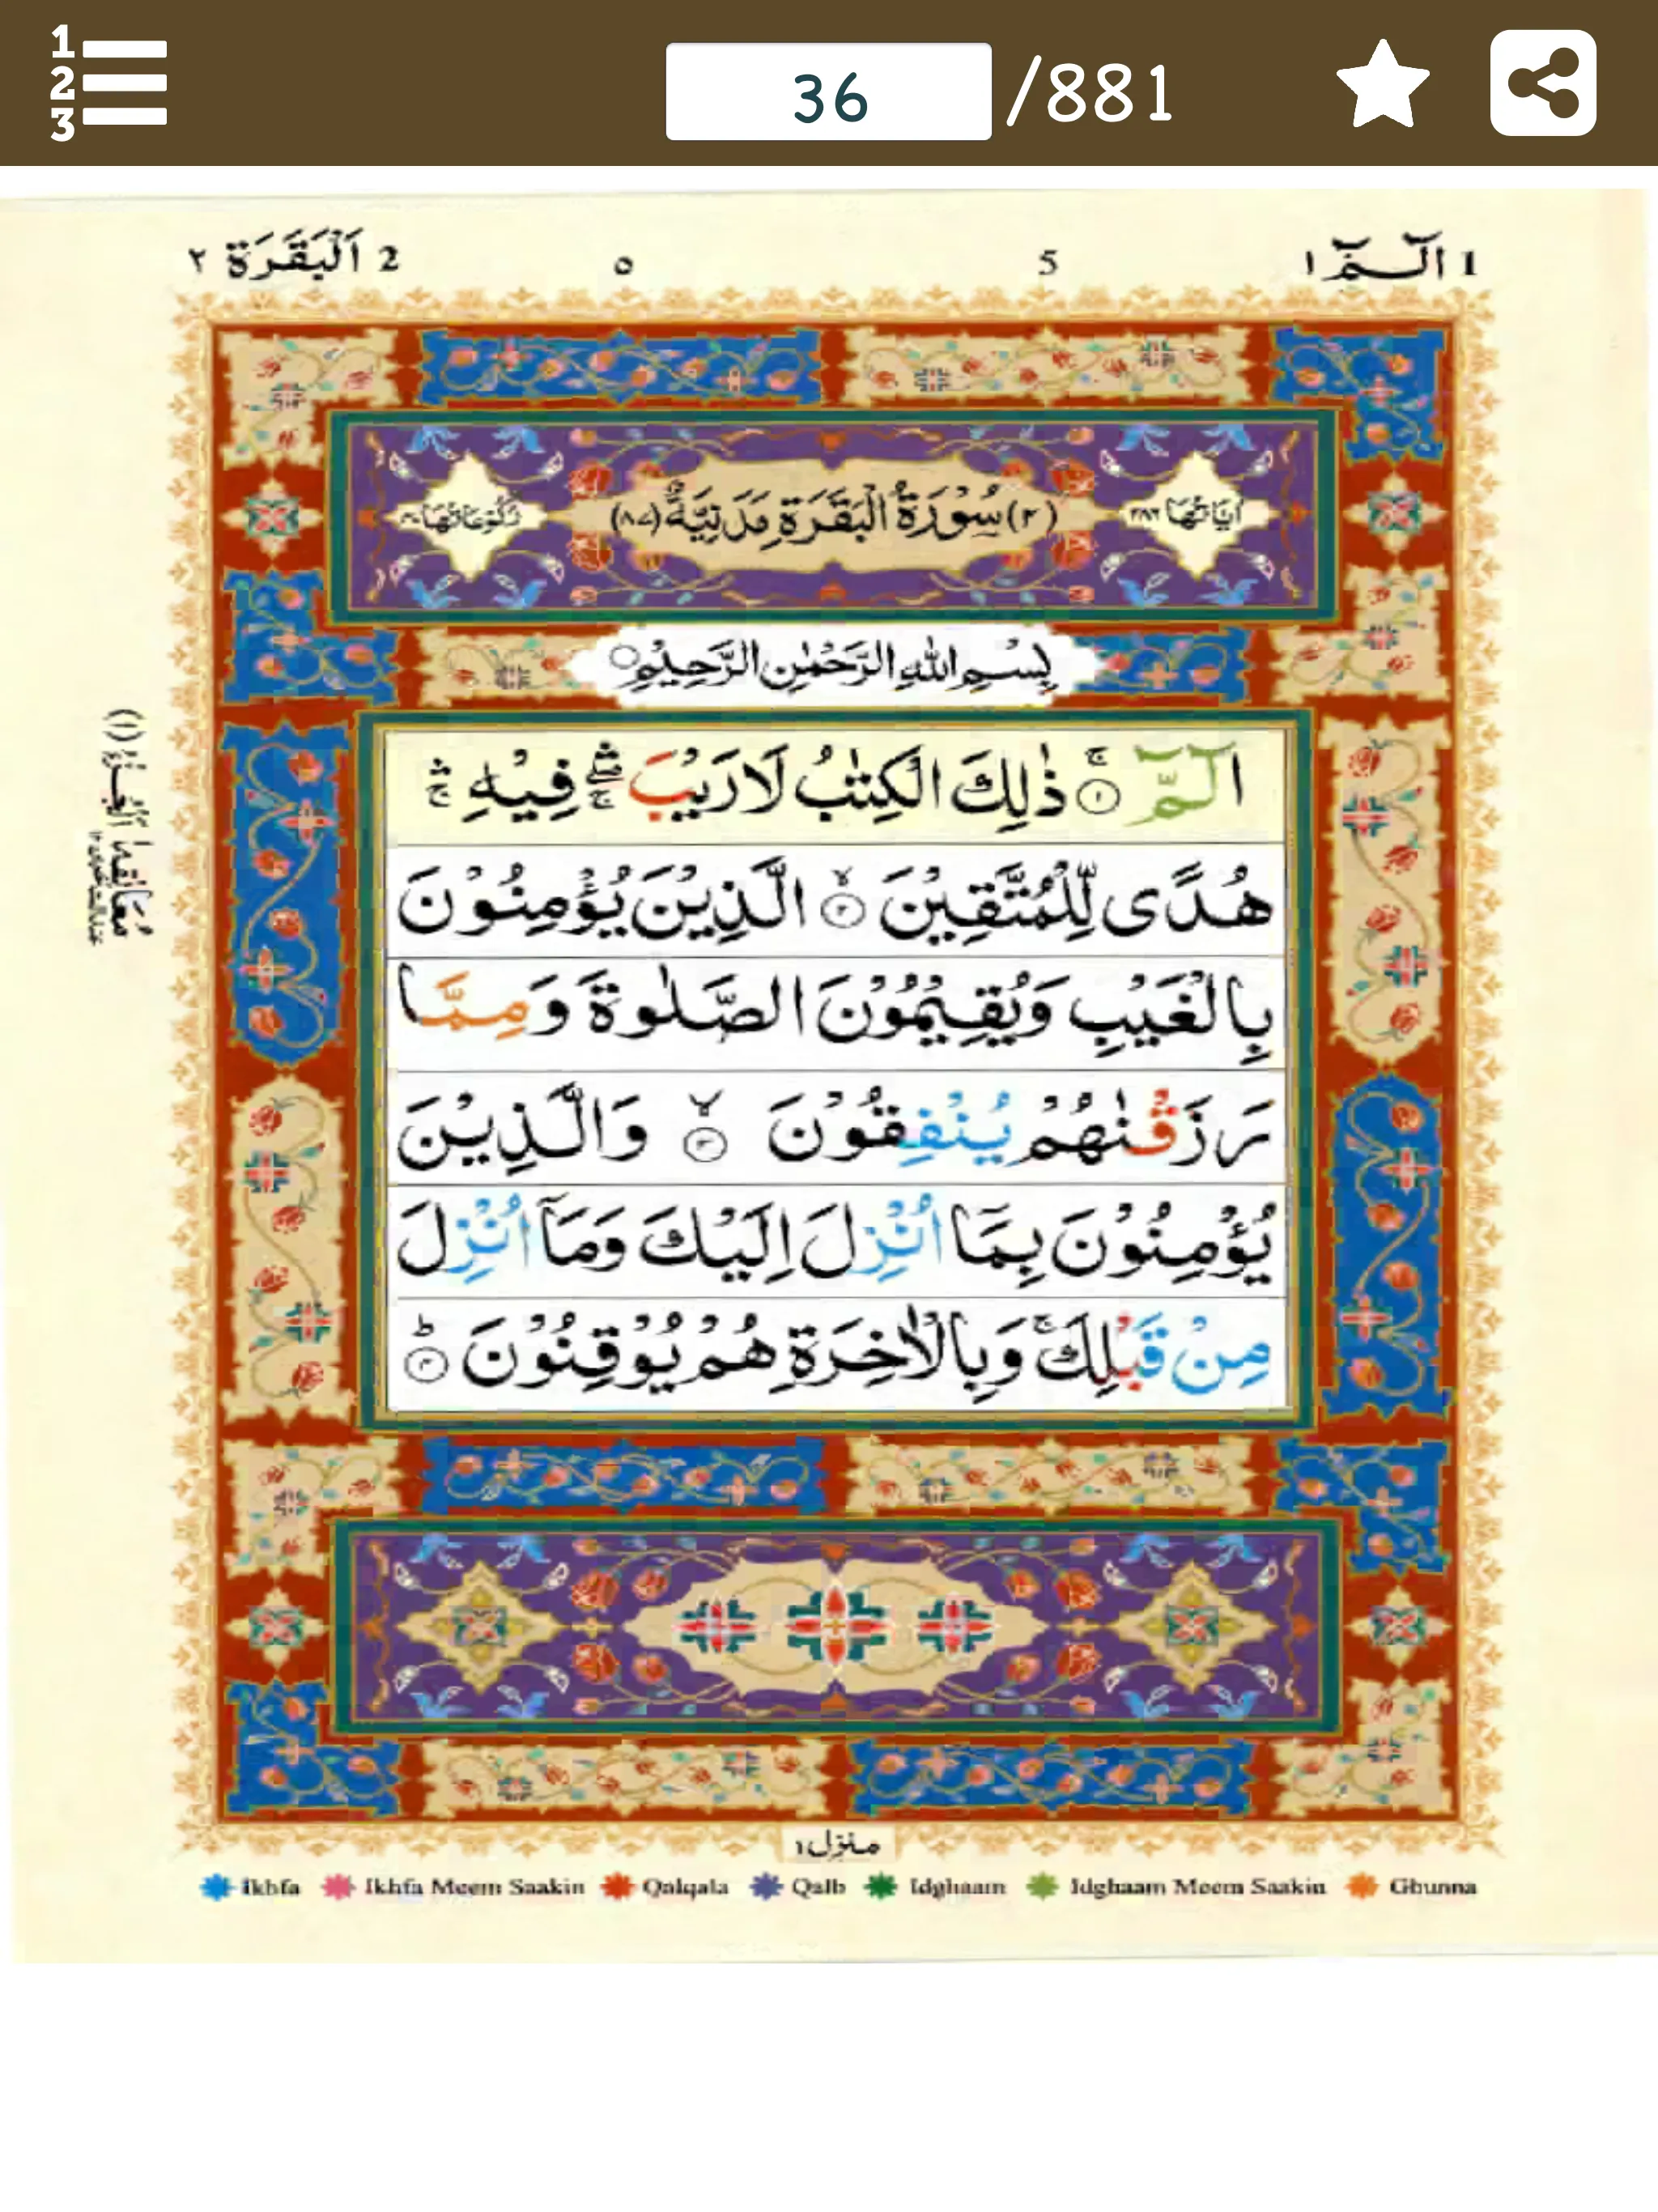 1
2
3
36 /881
1 الٓـمّٓ ١
5
٥
2 اَلْبَقَرَة ٢
اٰيَاتُهَا ٢٨٦
(٢) سُوْرَةُ الْبَقَرَةِ مَدَنِيَّةٌ (٨٧)
رُكُوْعَاتُهَا ٤٠
بِسْمِ اللّٰهِ الرَّحْمٰنِ الرَّحِيْمِ
الٓـمّٓ ۚ ١ ذٰلِكَ الْكِتٰبُ لَا رَيْبَ ۛۖۚ فِيْهِ ۛۚ
هُدًى لِّلْمُتَّقِيْنَ ۙ ٢ الَّذِيْنَ يُؤْمِنُوْنَ
بِالْغَيْبِ وَيُقِيْمُوْنَ الصَّلٰوةَ وَمِمَّا
رَزَقْنٰهُمْ يُنْفِقُوْنَ ۙ ٣ وَالَّذِيْنَ
يُؤْمِنُوْنَ بِمَآ اُنْزِلَ اِلَيْكَ وَمَآ اُنْزِلَ
مِنْ قَبْلِكَ ۚ وَبِالْاٰخِرَةِ هُمْ يُوْقِنُوْنَ ؕ ٤
منزل ١
Ikhfa Ikhfa Meem Saakin Qalqala Qalb Idghaam Idghaam Meem Saakin Ghunna